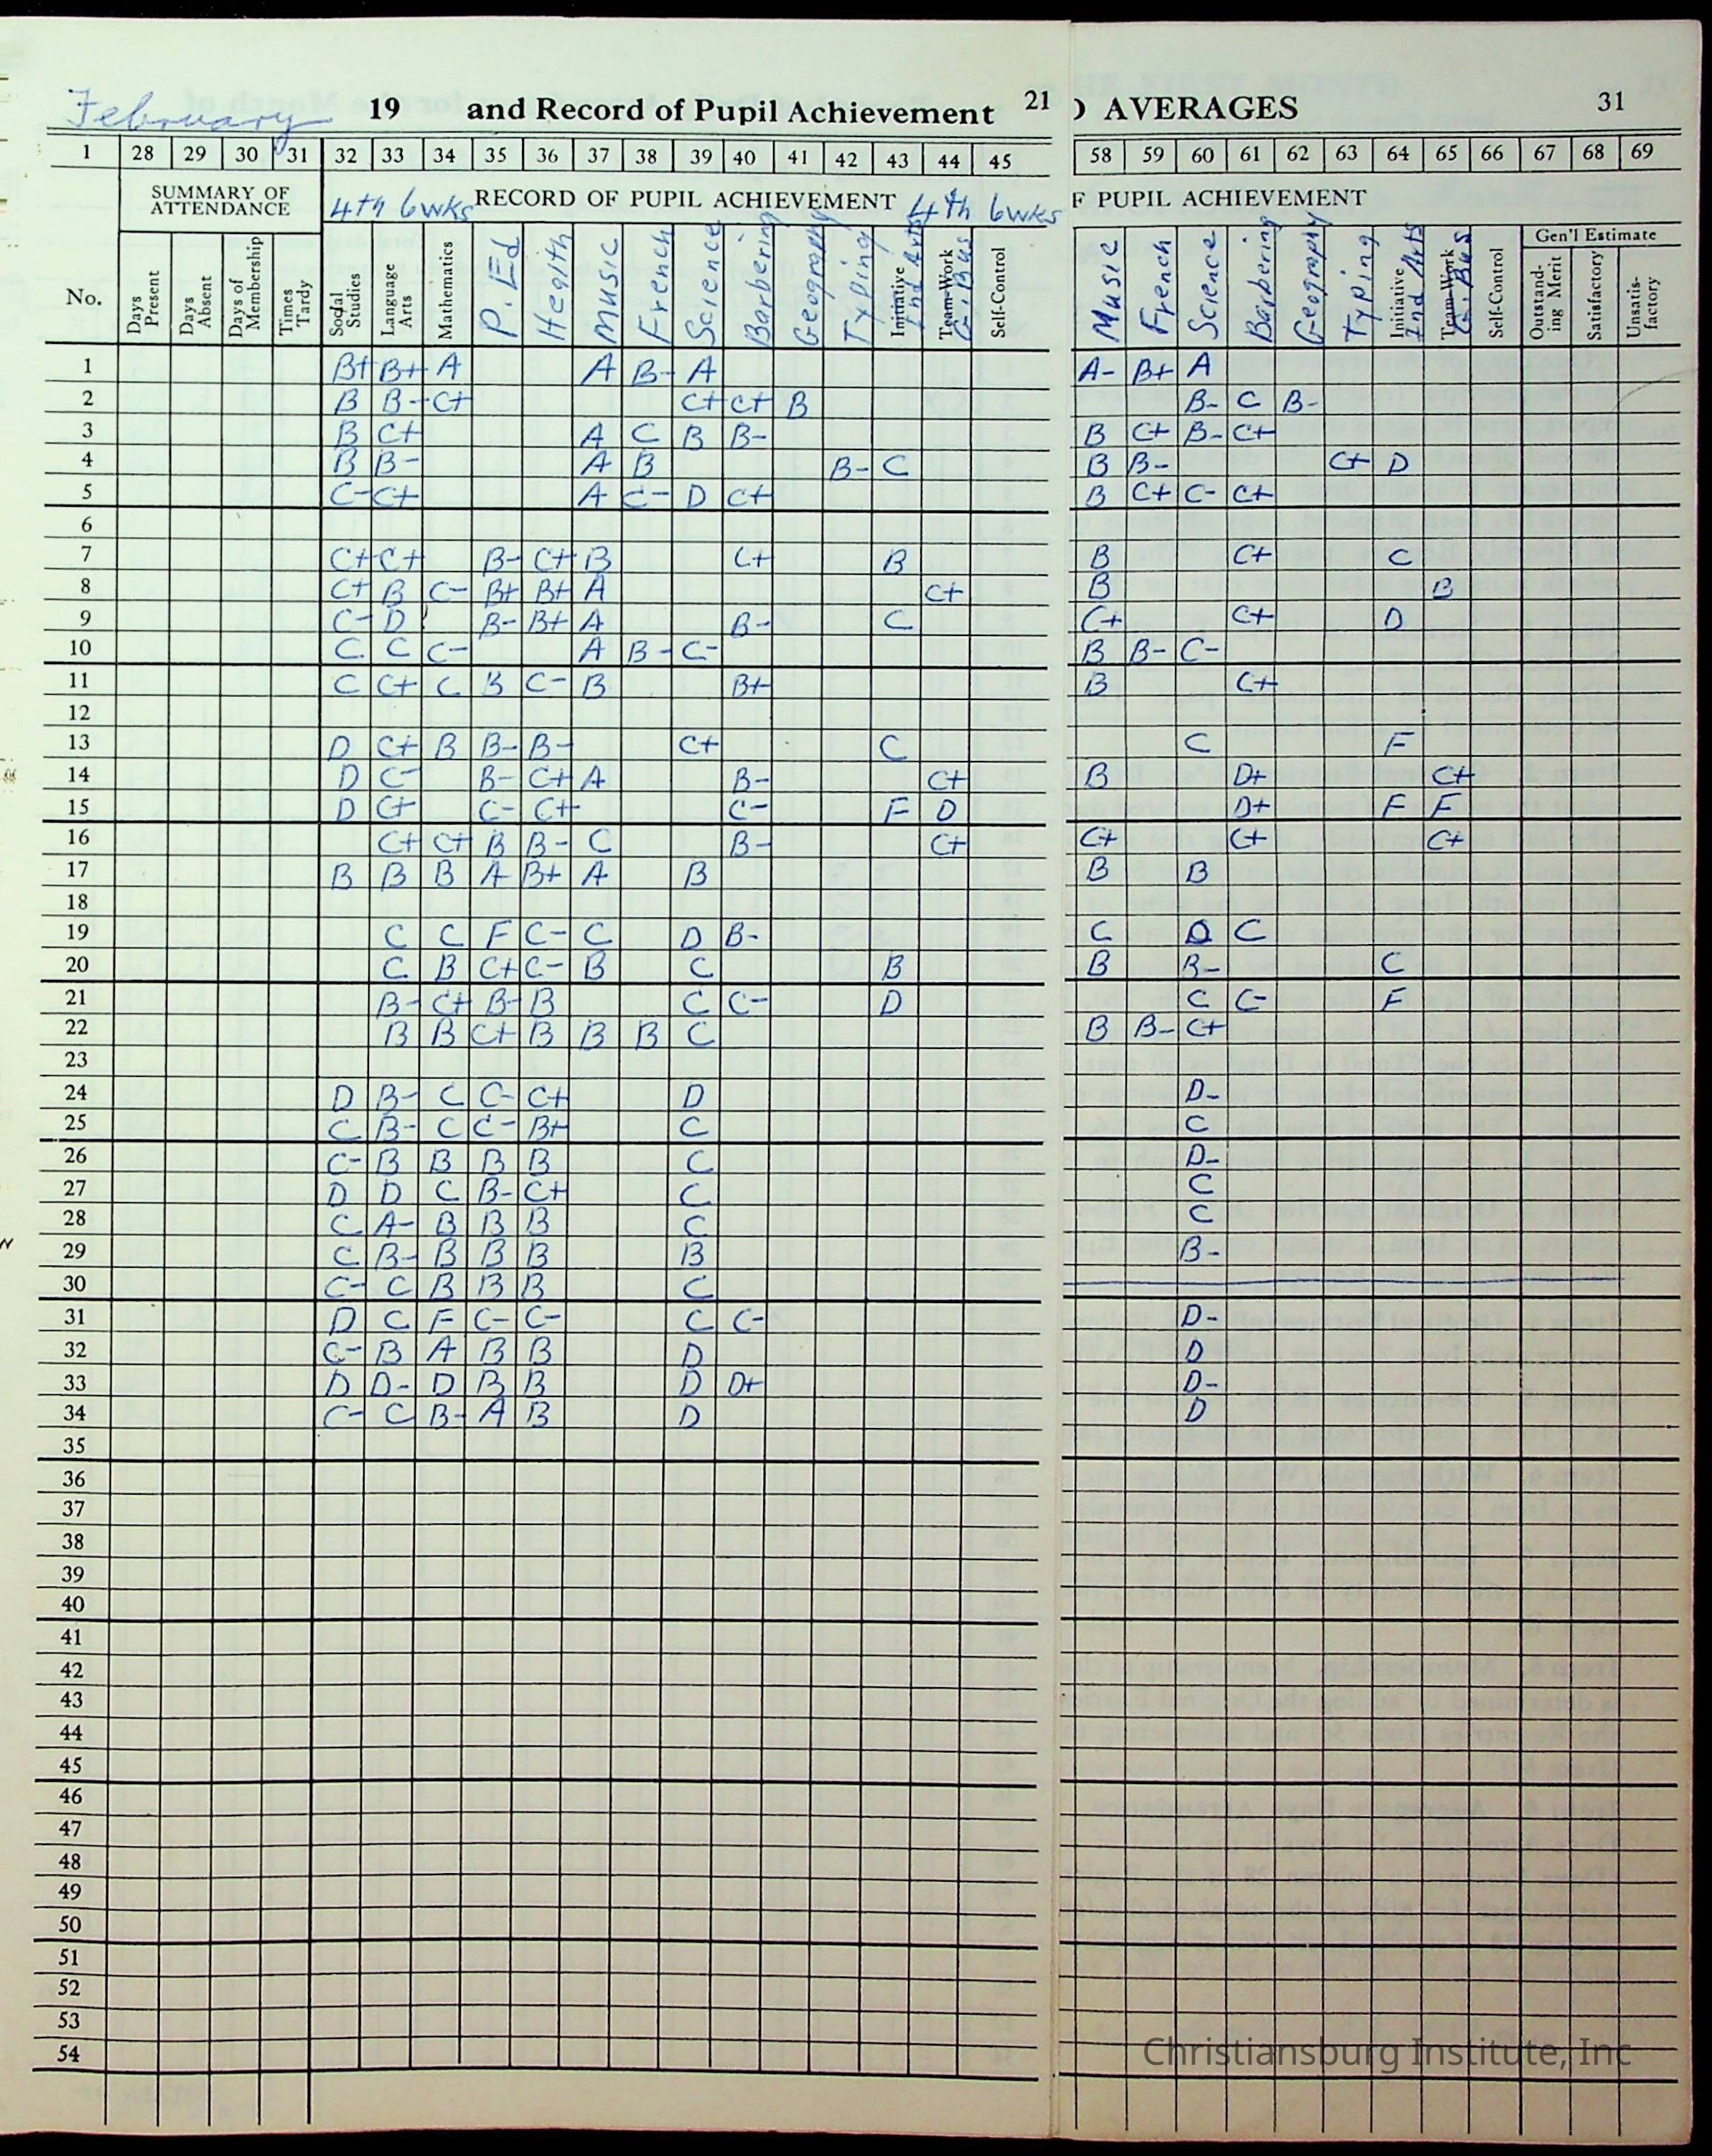 February 19 and Record of Pupil Achievement 21
1 28 29 30 31 32 33 34 35 36 37 38 39 40 41 42 43 44 45
SUMMARY OF ATTENDANCE 4th 6wks RECORD OF PUPIL ACHIEVEMENT 4th 6wks
No. Days Present Days Absent Days of Membership Times Tardy Social Studies Language Arts Mathematics P. Ed Health Music French Science Barbering Geography Typing Initiative Ind Arts Team-Work G. Bus Self-Control
1 B+ B+ A A B- A
2 B B- C+ C+ C+ B
3 B C+ A C B B-
4 B B- A B B- C
5 C- C+ A C- D C+
6
7 C+ C+ B- C+ B C+ B
8 C+ B C- B+ B+ A C+
9 C- D B- B+ A B- C
10 C C C- A B- C-
11 C C+ C B C- B B+
12
13 D C+ B B- B- C+ C
14 D C- B- C+ A B- C+
15 D C+ C- C+ C- F D
16 C+ C+ B B- C B- C+
17 B B B A B+ A B
18
19 C C F C- C D B-
20 C B C+ C- B C B
21 B- C+ B- B C C- D
22 B B C+ B B B C
23
24 D B- C C- C+ D
25 C B- C C- B+ C
26 C- B B B B C
27 D D C B- C+ C
28 C A- B B B C
29 C B- B B B B
30 C- C B B B C
31 D C F C- C- C C-
32 C- B A B B D
33 D D- D B B D D+
34 C- C B- A B D
35
36
37
38
39
40
41
42
43
44
45
46
47
48
49
50
51
52
53
54
) AVERAGES 31
58 59 60 61 62 63 64 65 66 67 68 69
F PUPIL ACHIEVEMENT
Gen'l Estimate
Music French Science Barbering Geography Typing Initiative Ind Arts Team-Work G. Bus Self-Control Outstanding Merit Satisfactory Unsatisfactory
A- B+ A
B- C B-
B C+ B- C+
B B- C+ D
B C+ C- C+
B C+ C
B B
C+ C+ D
B B- C-
B C+
C F
B D+ C+
D+ F F
C+ C+ C+
B B
C D C
B B- C
C C- F
B B- C+
D-
C
D-
C
C
B-
D-
D
D-
D
Christiansburg Institute, Inc